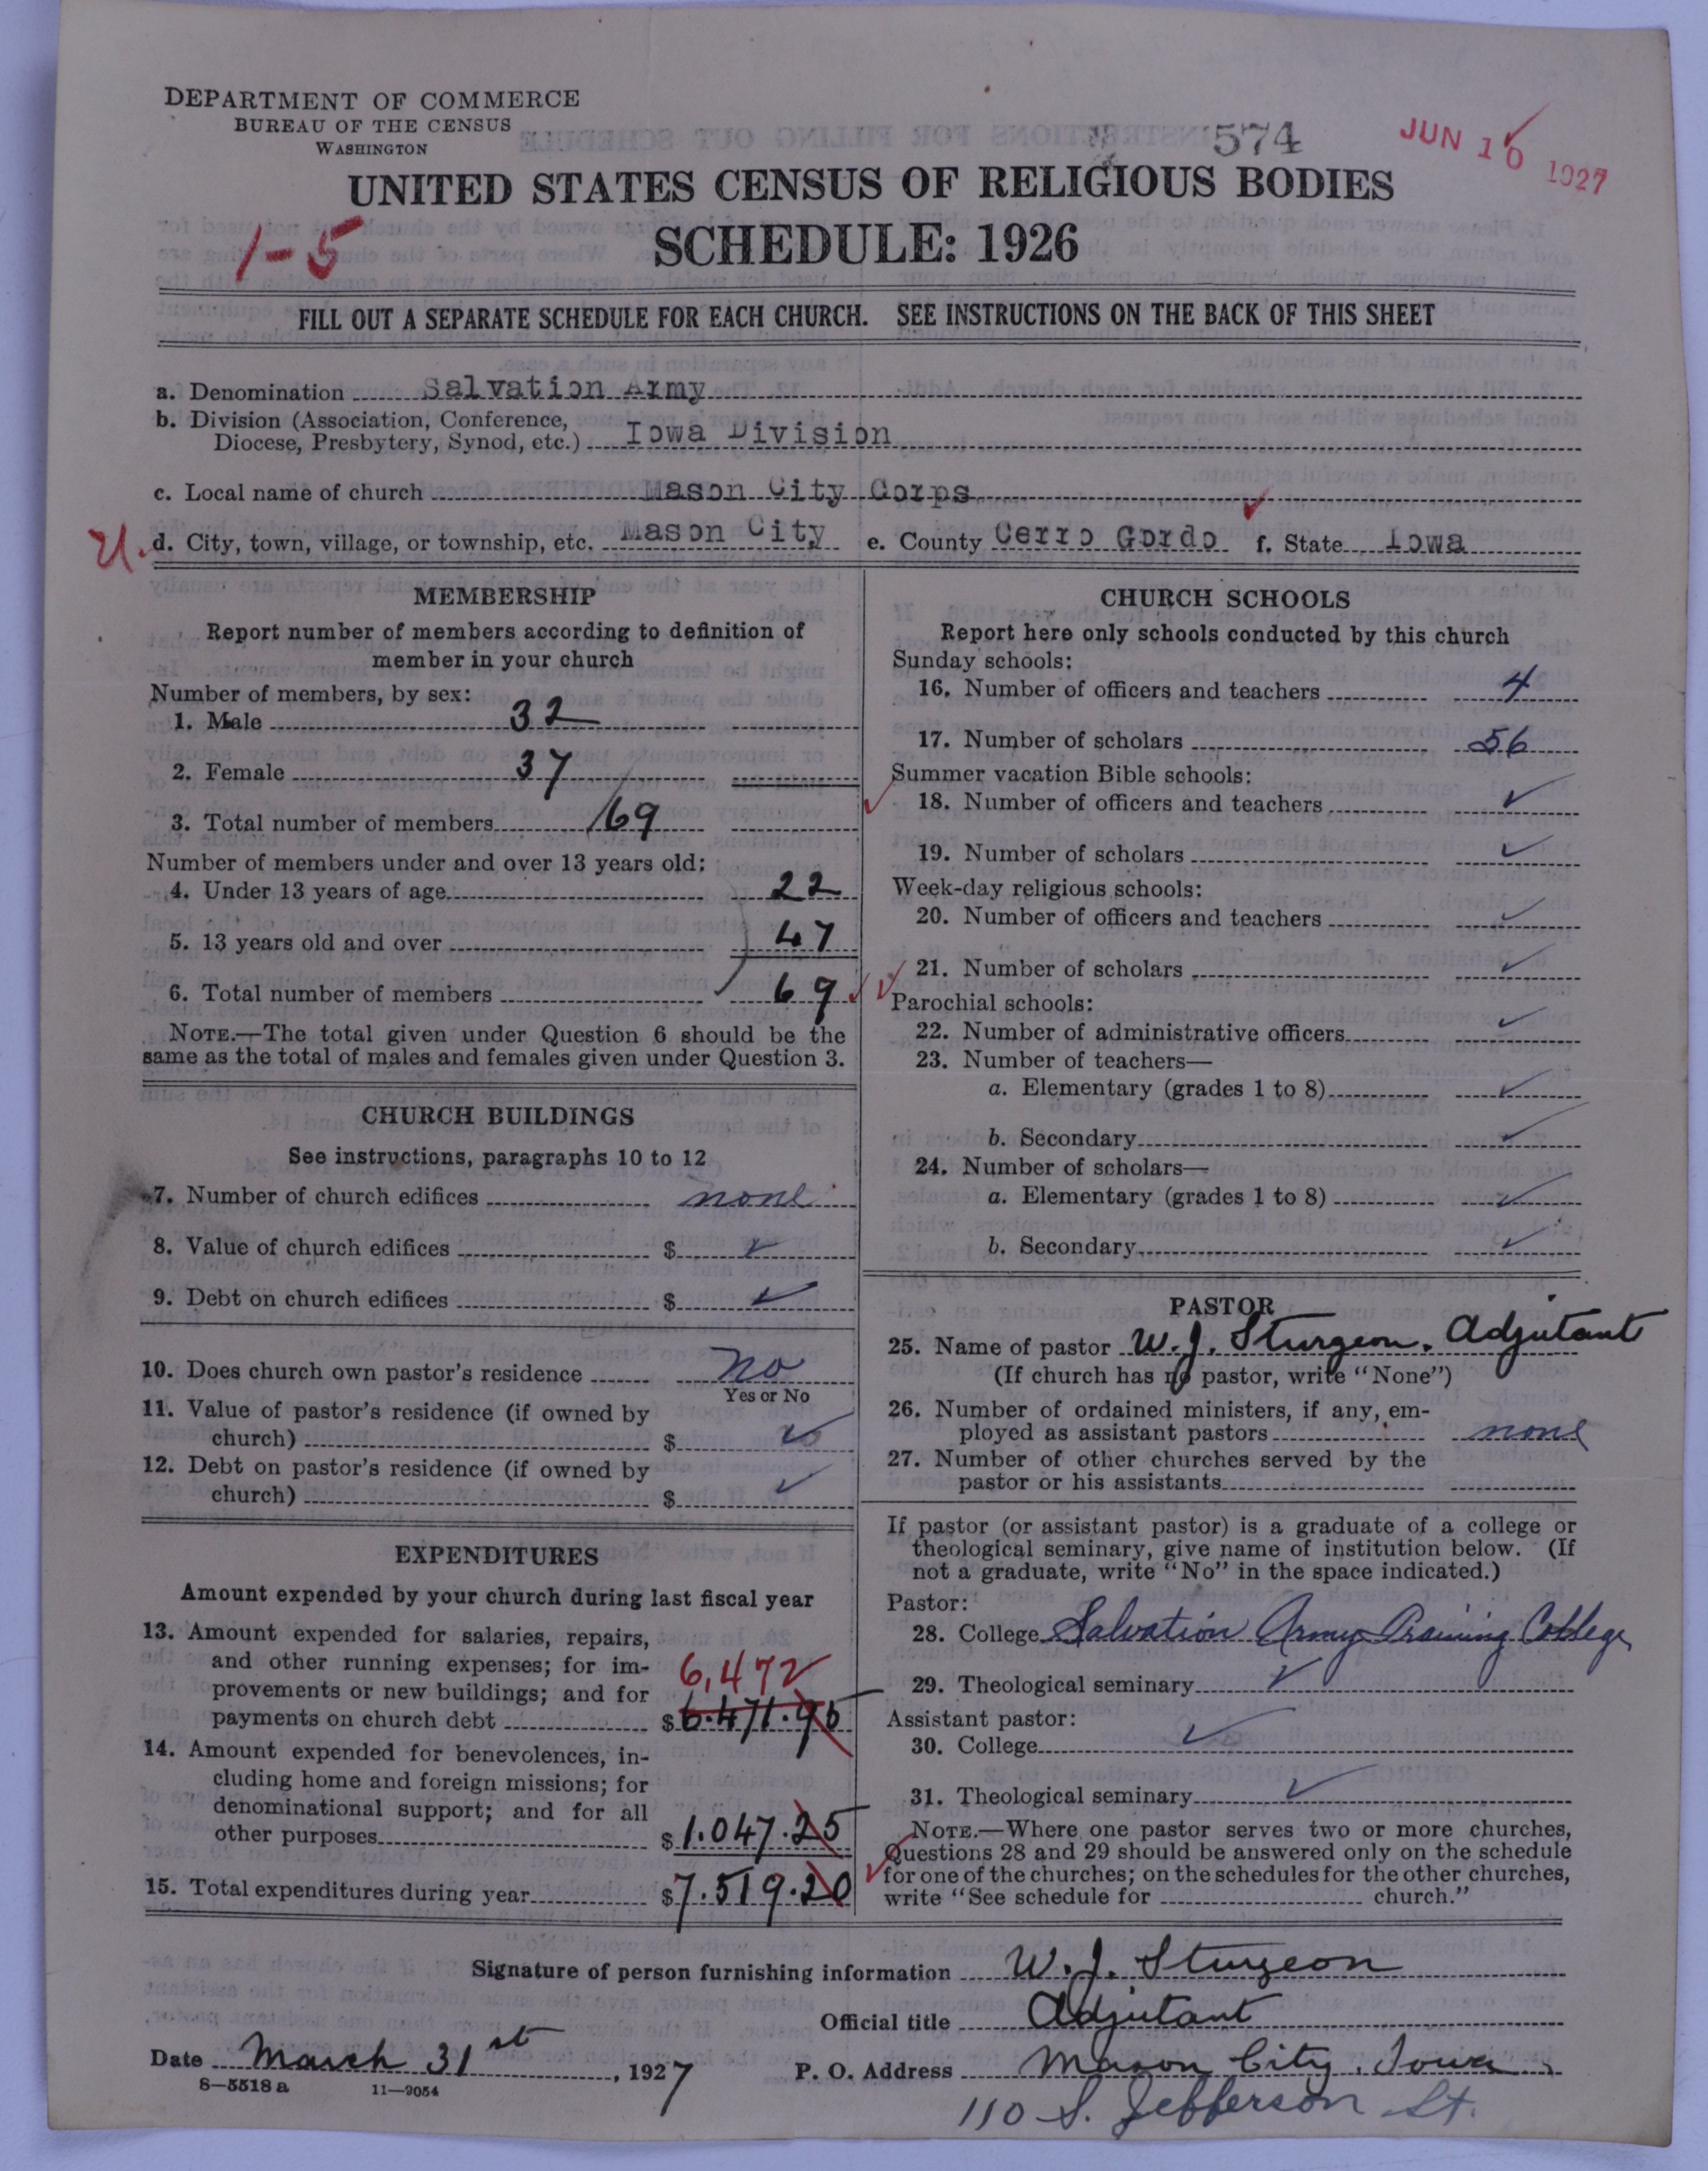 DEPARTMENT OF COMMERCE
BUREAU OF THE CENSUS
WASHINGTON
574
JUN 10 1927
UNITED STATES CENSUS OF RELIGIOUS BODIES
1-5
SCHEDULE: 1926
FILL OUT A SEPARATE SCHEDULE FOR EACH CHURCH. SEE INSTRUCTIONS ON THE BACK OF THIS SHEET
a. Denomination Salvation Army
b. Division (Association, Conference,
Diocese, Presbytery, Synod, etc.) Iowa Division
c. Local name of church Mason City Corps
d. City, town, village, or township, etc. Mason City e. County Cerro Gordo f. State Iowa
MEMBERSHIP
Report number of members according to definition of
member in your church
Number of members, by sex:
1. Male 32
2. Female 37
3. Total number of members 69
Number of members under and over 13 years old:
4. Under 13 years of age 22
5. 13 years old and over 47
6. Total number of members 69
NOTE.—The total given under Question 6 should be the
same as the total of males and females given under Question 3.
CHURCH BUILDINGS
See instructions, paragraphs 10 to 12
7. Number of church edifices none
8. Value of church edifices $
9. Debt on church edifices $
10. Does church own pastor's residence No
Yes or No
11. Value of pastor's residence (if owned by
church) $
12. Debt on pastor's residence (if owned by
church) $
EXPENDITURES
Amount expended by your church during last fiscal year
13. Amount expended for salaries, repairs,
and other running expenses; for im-
provements or new buildings; and for 6,472
payments on church debt $6.471.95
14. Amount expended for benevolences, in-
cluding home and foreign missions; for
denominational support; and for all
other purposes $1.047.25
15. Total expenditures during year $7.519.20
CHURCH SCHOOLS
Report here only schools conducted by this church
Sunday schools:
16. Number of officers and teachers 4
17. Number of scholars 56
Summer vacation Bible schools:
18. Number of officers and teachers
19. Number of scholars
Week-day religious schools:
20. Number of officers and teachers
21. Number of scholars
Parochial schools:
22. Number of administrative officers
23. Number of teachers—
a. Elementary (grades 1 to 8)
b. Secondary
24. Number of scholars—
a. Elementary (grades 1 to 8)
b. Secondary
PASTOR
25. Name of pastor W. J. Sturgeon. Adjutant
(If church has no pastor, write "None")
26. Number of ordained ministers, if any, em-
ployed as assistant pastors none
27. Number of other churches served by the
pastor or his assistants
If pastor (or assistant pastor) is a graduate of a college or
theological seminary, give name of institution below. (If
not a graduate, write "No" in the space indicated.)
Pastor:
28. College Salvation Army Training College
29. Theological seminary
Assistant pastor:
30. College
31. Theological seminary
NOTE.—Where one pastor serves two or more churches,
Questions 28 and 29 should be answered only on the schedule
for one of the churches; on the schedules for the other churches,
write "See schedule for church."
Signature of person furnishing information W. J. Sturgeon
Official title Adjutant
Date March 31st, 1927 P. O. Address Mason City, Iowa
8—5518 a 11—9054
110 S. Jefferson St.